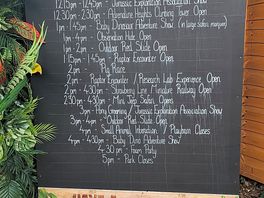 12.15pm - Jurassic Exploration Association Show
12.30pm - 2.30pm - Adventure Heights Climbing Tower Open
1pm - Baby Dinosaur Adventure Show (in large safari marquee)
1pm - Observation Hide Open
1pm - 2pm - Outdoor Raft Slide Open
1.15pm - 1.45pm - Raptor Encounter Open
2pm - Pig Race
2pm - Raptor Encounter / Research Lab Experience Open
2pm - 4.30pm - Strawberry Line Miniature Railway Open
2.30 - 4.30pm - Mini Jeep Safari Open
3pm - Pony Grooming / Jurassic Exploration Association Show
3pm - 4pm - Outdoor Raft Slide Open
4pm - Small Animal Interaction / Playbarn Classes
4pm - Baby Dino Adventure Show
4.30pm - Foam Party
5pm - Park Closes